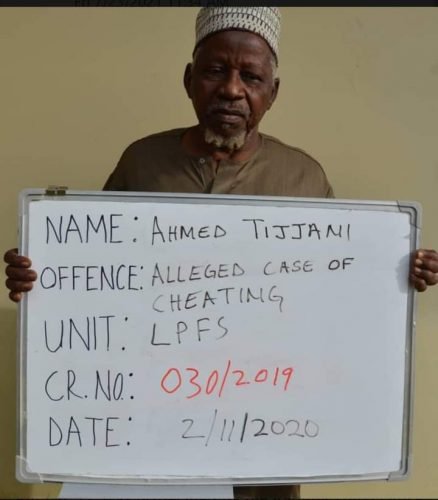 NAME: AHMED TIJJANI
OFFENCE: ALLEGED CASE OF
CHEATING
UNIT: LPFS
CR. NO: 030/2019
DATE: 2/11/2020